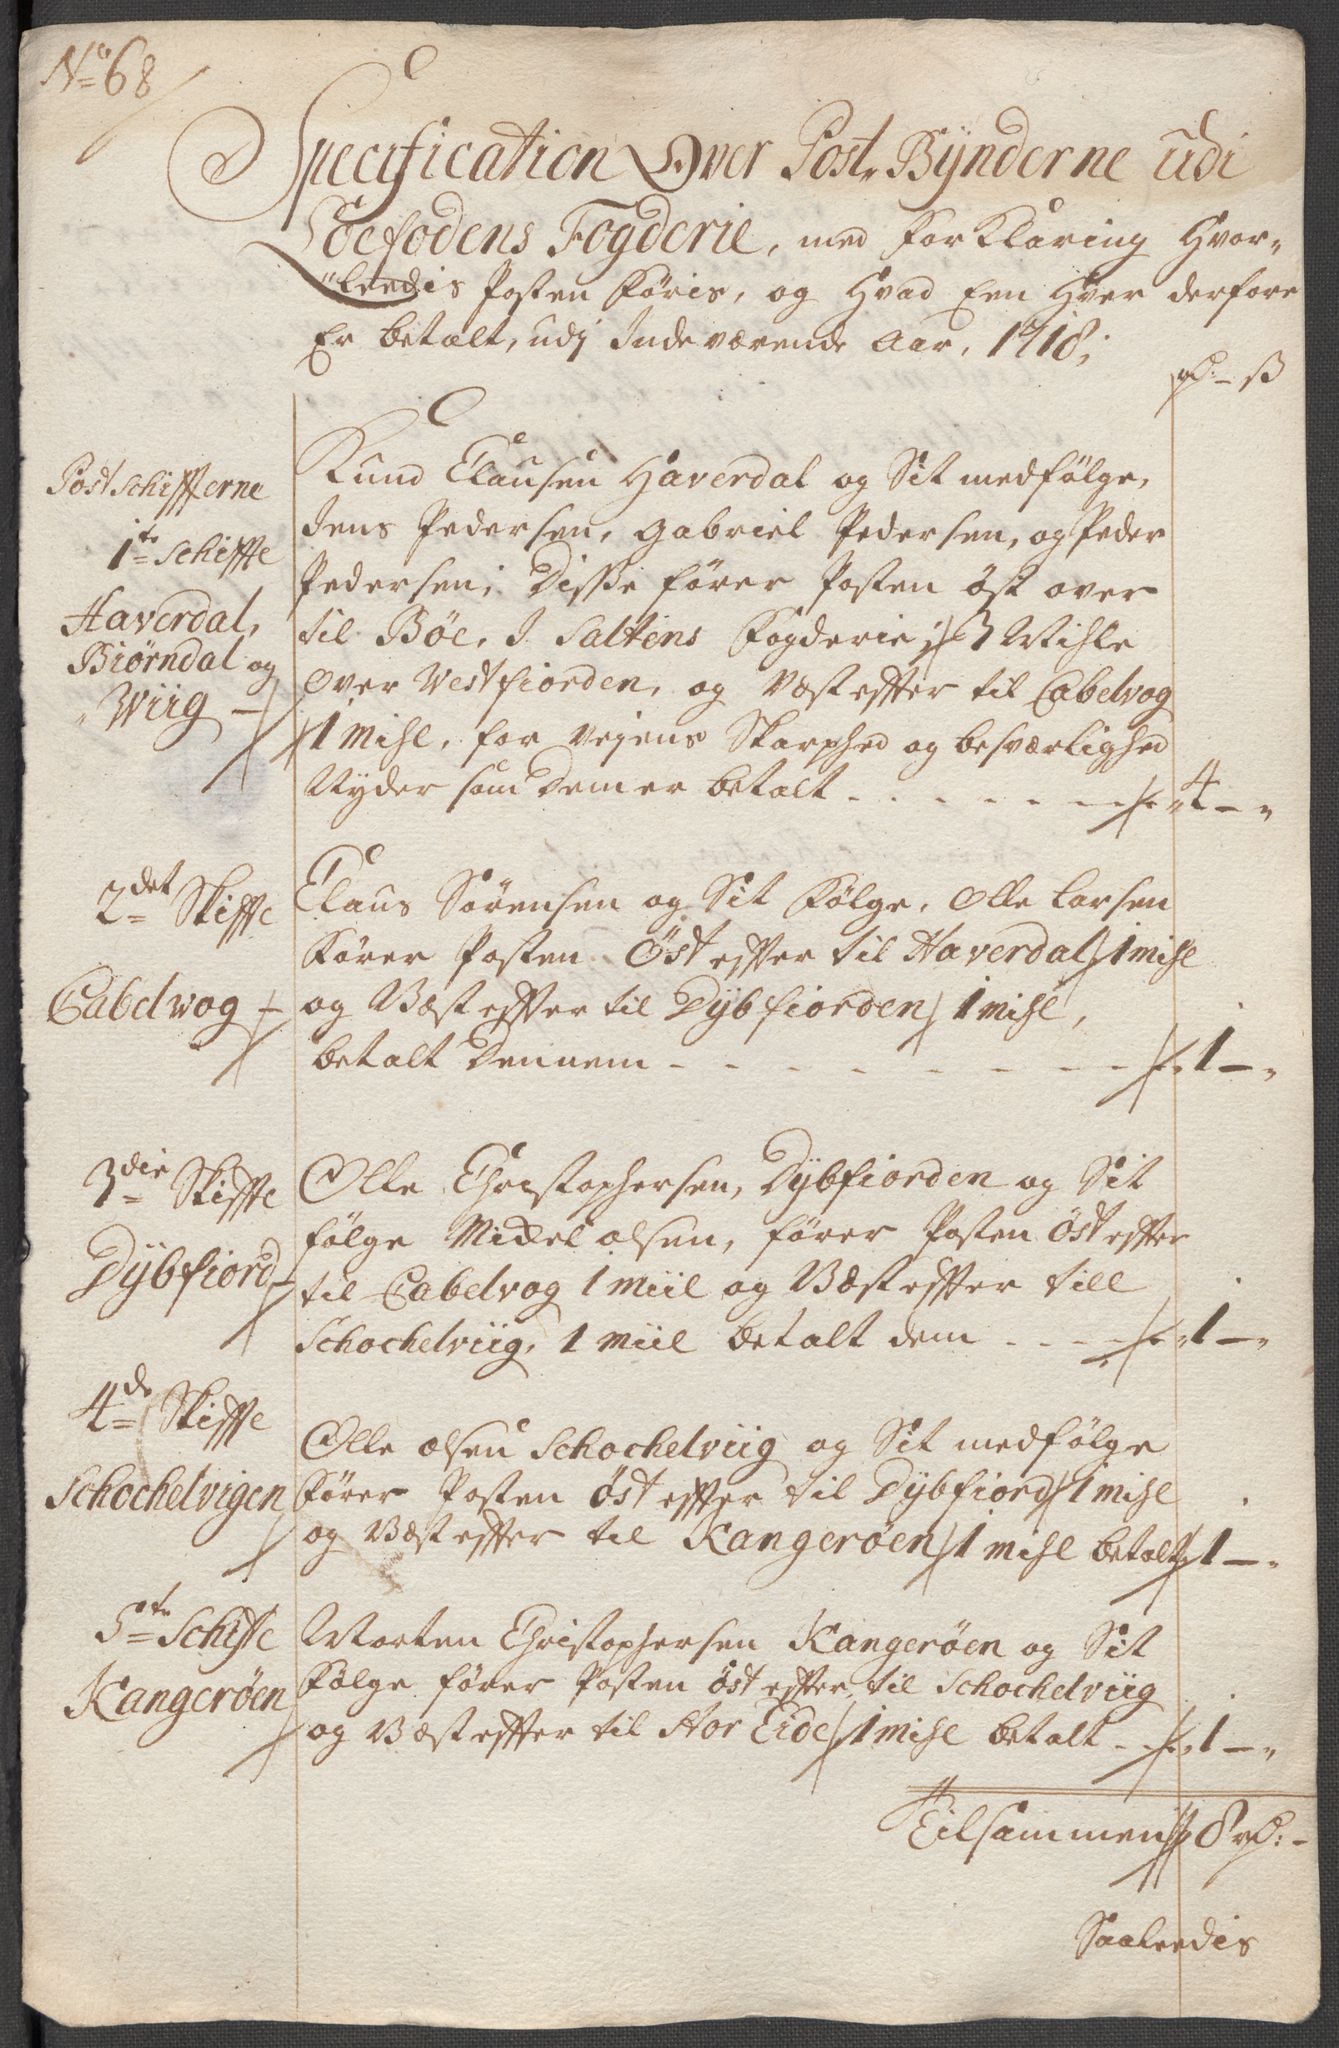 No 68
Specification Over Post Bynderne udi
Loefodens Fogderie, med forklaring Hvor-
"leedis Posten föris, og Hvad Een Hver derfore
Er betalt, udj Indeværende Aar, 1718;
rd: - ß
Post schiffterne
1te Schiffte
Haverdal,
Biörndal og
Wiig -
Knud Clausen Haverdal og Sit medfölge,
Jens Pedersen, Gabriel Pedersen, og Peder
Pedersen; Disse förer Posten öst over
til Böe, I Saltens Fogderie 3 Mihle
over Westfiorden, og Væst effter til Cabelvog
1 mihl, for Vejens Skarphed og besværlighed
Nyder som Dem er betalt - - - - - - 4 - "
2det Skiffte
Cabelwog -
Claus Sörensen og Sit Fölge, Olle Larsen
förer Posten Öst effter til Haverdal 1 mihl
og Væst effter til Dÿbfiorden 1 mihl,
betalt Dennem - - - - - - - - 1 - "
3die Skiffte
Dÿbfiord -
Olle Christophersen, Dÿbfiorden og Sit
fölge Mickel Olsen, förer Posten Öst effter
til Cabelvog 1 miil og Væst effter till
Schochelviig, 1 miil betalt dem - - - "1 - "
4de Skiffte
Schochelvigen
Olle Olsen Schochelviig og Sit medfölge
förer Posten Öst effter til Dÿbfiord 1 mihl
og Væst effter til Kangeröen 1 mihl betalt 1 - "
5te Schiffte
Kangeröen
Morten Christophersen Kangeröen og Sit
Fölge förer Posten öst effter til Schochelviig
og Væst effter til Hor Eide 1 mihl betalt - - "1 - "
Tilsammen 8 rd: -
Saaleedis